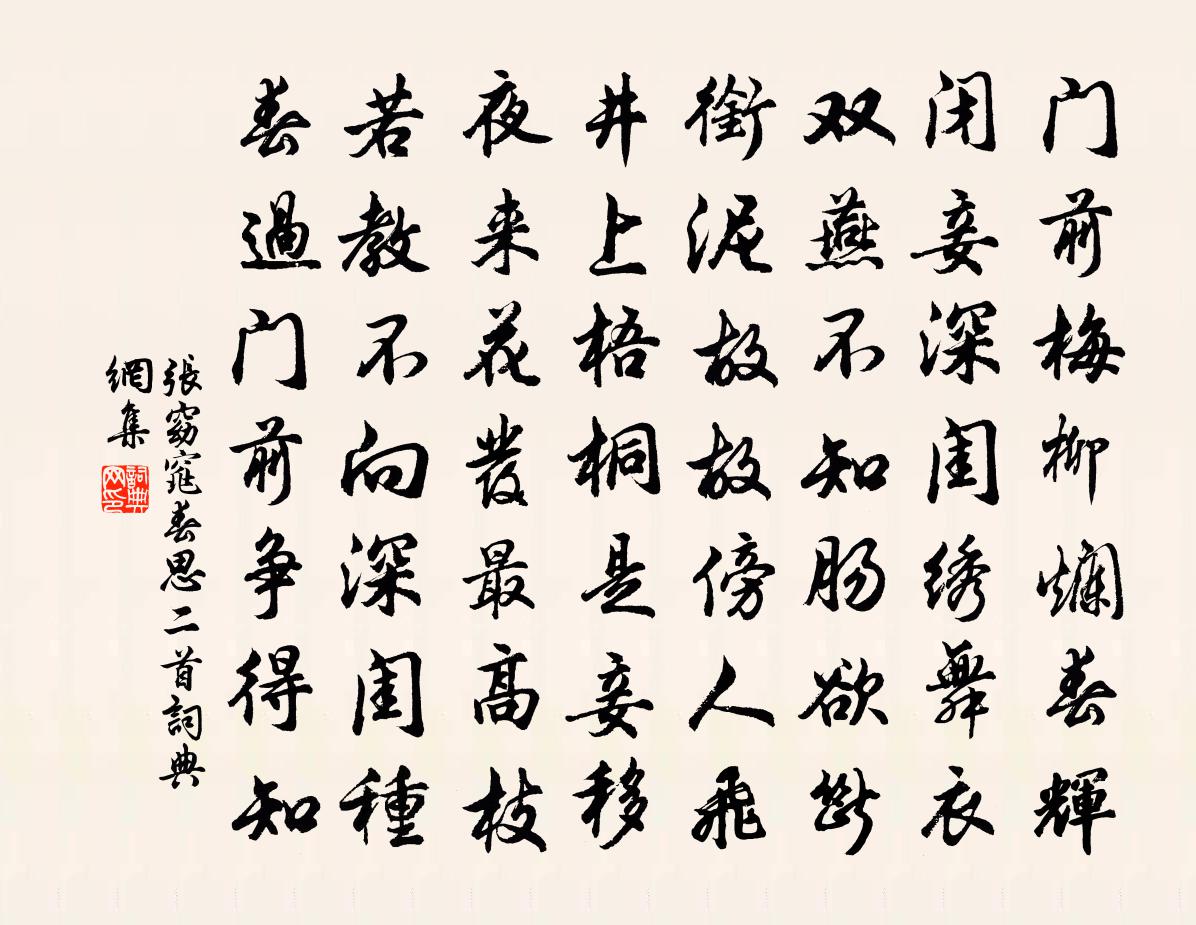 门前梅柳爛春輝
闭妾深闺绣舞衣
双燕不知肠欲断
銜泥故故傍人飛
井上梧桐是妾移
夜来花發最高枝
若教不向深闺種
春過门前争得知
張窈窕春思二首詞典
網集
詞典网印